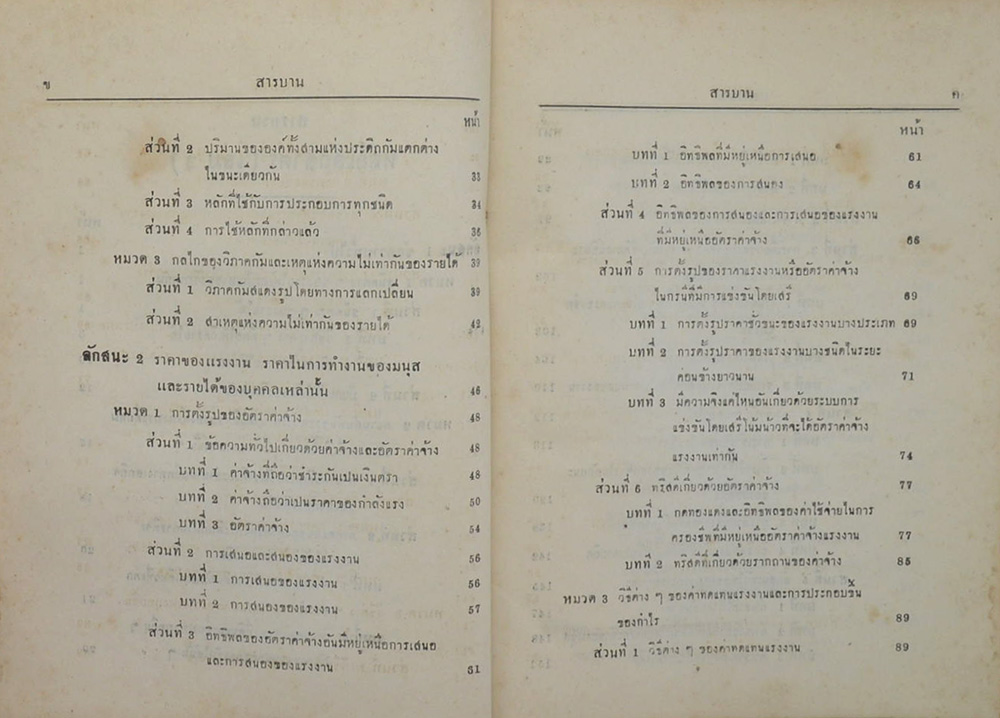 ข สารบาน
หน้า
ส่วนที่ 2 ปริมานขององค์ทั้งสามแห่งประติกกัมแตกต่าง
ในขนะเดียวกัน 33
ส่วนที่ 3 หลักที่ใช้กับการประกอบการทุกชนิด 34
ส่วนที่ 4 การใช้หลักที่กล่าวแล้ว 36
หมวด 3 กลไกของวิภาคกัมและเหตุแห่งความไม่เท่ากันของรายได้ 39
ส่วนที่ 1 วิภาคกัมสแดงรูปโดยทางการแลกเปลี่ยน 39
ส่วนที่ 2 สาเหตุแห่งความไม่เท่ากันของรายได้ 42
ลักสนะ 2 ราคาของแรงงาน ราคาในการทำงานของมนุส
และรายได้ของบุคคลเหล่านั้น 46
หมวด 1 การตั้งรูปของอัตราค่าจ้าง 48
ส่วนที่ 1 ข้อความทั่วไปเกี่ยวด้วยค่าจ้างและอัตราค่าจ้าง 48
บทที่ 1 ค่าจ้างที่ถือว่าชำระกันเป็นเงินตรา 48
บทที่ 2 ค่าจ้างถือว่าเป็นราคาของกำลังแรง 50
บทที่ 3 อัตราค่าจ้าง 54
ส่วนที่ 2 การเสนอและสนองของแรงงาน 56
บทที่ 1 การเสนอของแรงงาน 56
บทที่ 2 การสนองของแรงงาน 57
ส่วนที่ 3 อิทธิพลของอัตราค่าจ้างอันมีหยู่เหนือการเสนอ
และการสนองของแรงงาน 61
สารบาน ค
หน้า
บทที่ 1 อิทธิพลที่มีหยู่เหนือการเสนอ 61
บทที่ 2 อิทธิพลของการสนอง 64
ส่วนที่ 4 อิทธิพลของการสนองและการเสนอของแรงงาน
ที่มีหยู่เหนืออัตราค่าจ้าง 66
ส่วนที่ 5 การตั้งรูปของราคาแรงงานหรืออัตราค่าจ้าง
ในกรนีที่มีการแข่งขันโดยเสรี 69
บทที่ 1 การตั้งรูปราคาชั่วขนะของแรงงานบางประเภท 69
บทที่ 2 การตั้งรูปราคาของแรงงานบางชนิดในระยะ
ค่อนข้างยาวนาน 71
บทที่ 3 มีความจิงแค่ไหนอันเกี่ยวด้วยระบบการ
แข่งขันโดยเสรีโน้มน้าวที่จะได้อัตราค่าจ้าง
แรงงานเท่ากัน 74
ส่วนที่ 6 ทริสดีเกี่ยวด้วยอัตราค่าจ้าง 77
บทที่ 1 กดทองแดงและอิทธิพลของค่าใช้จ่ายในการ
ครองชีพที่มีหยู่เหนืออัตราค่าจ้างแรงงาน 77
บทที่ 2 ทริสดีที่เกี่ยวด้วยรากถานของค่าจ้าง 85
หมวด 3 วิธีต่าง ๆ ของค่าทดแทนแรงงานและการประกอบขึ้น
ของกำไร 89
ส่วนที่ 1 วิธีต่าง ๆ ของค่าทดแทนแรงงาน 89